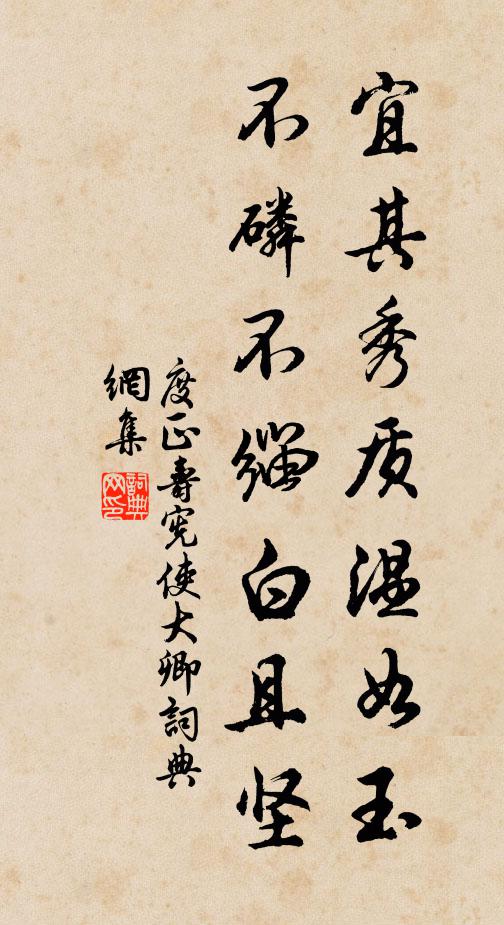 宜其秀质温如玉
不磷不缁白且坚
度正壽宪使大卿詞典
網集
詞典网印